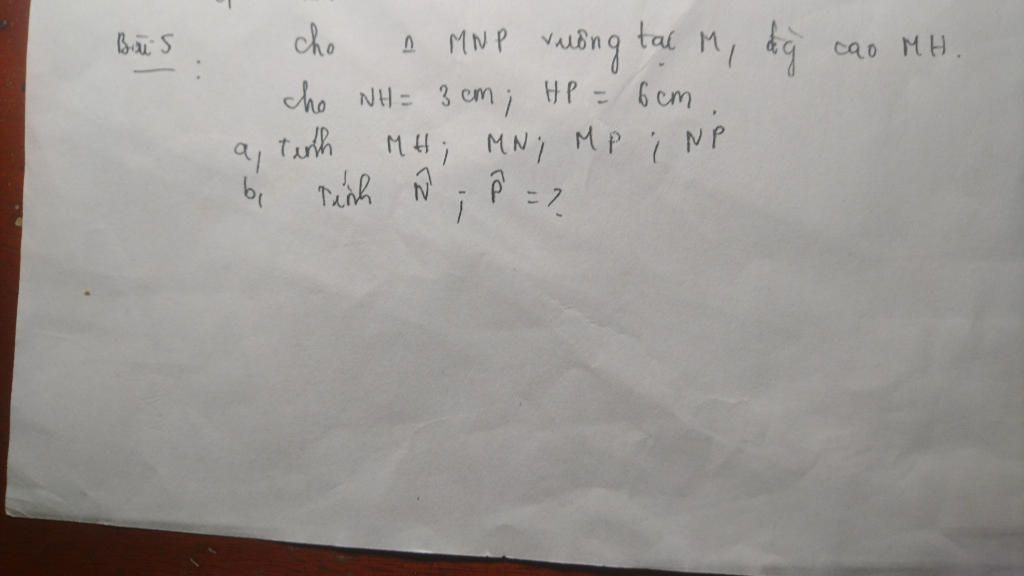 Bài 5 : cho △ MNP vuông tại M, đg cao MH.
cho NH = 3 cm; HP = 6 cm.
a, tính MH; MN; MP; NP
b, Tính N̂; P̂ = ?